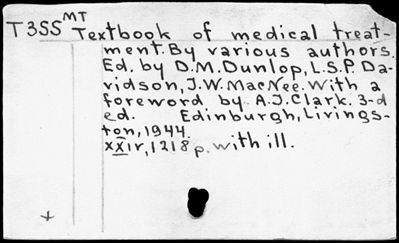 T355 MT Textbook of medical treat-
ment. By various authors.
Ed. by D.M. Dunlop, L.S.P. Da-
vidson, J.W. MacNee. With a
foreword by A.J. Clark. 3-d
ed. Edinburgh, Livings-
ton, 1944.
xxiv, 1218 p. with ill.